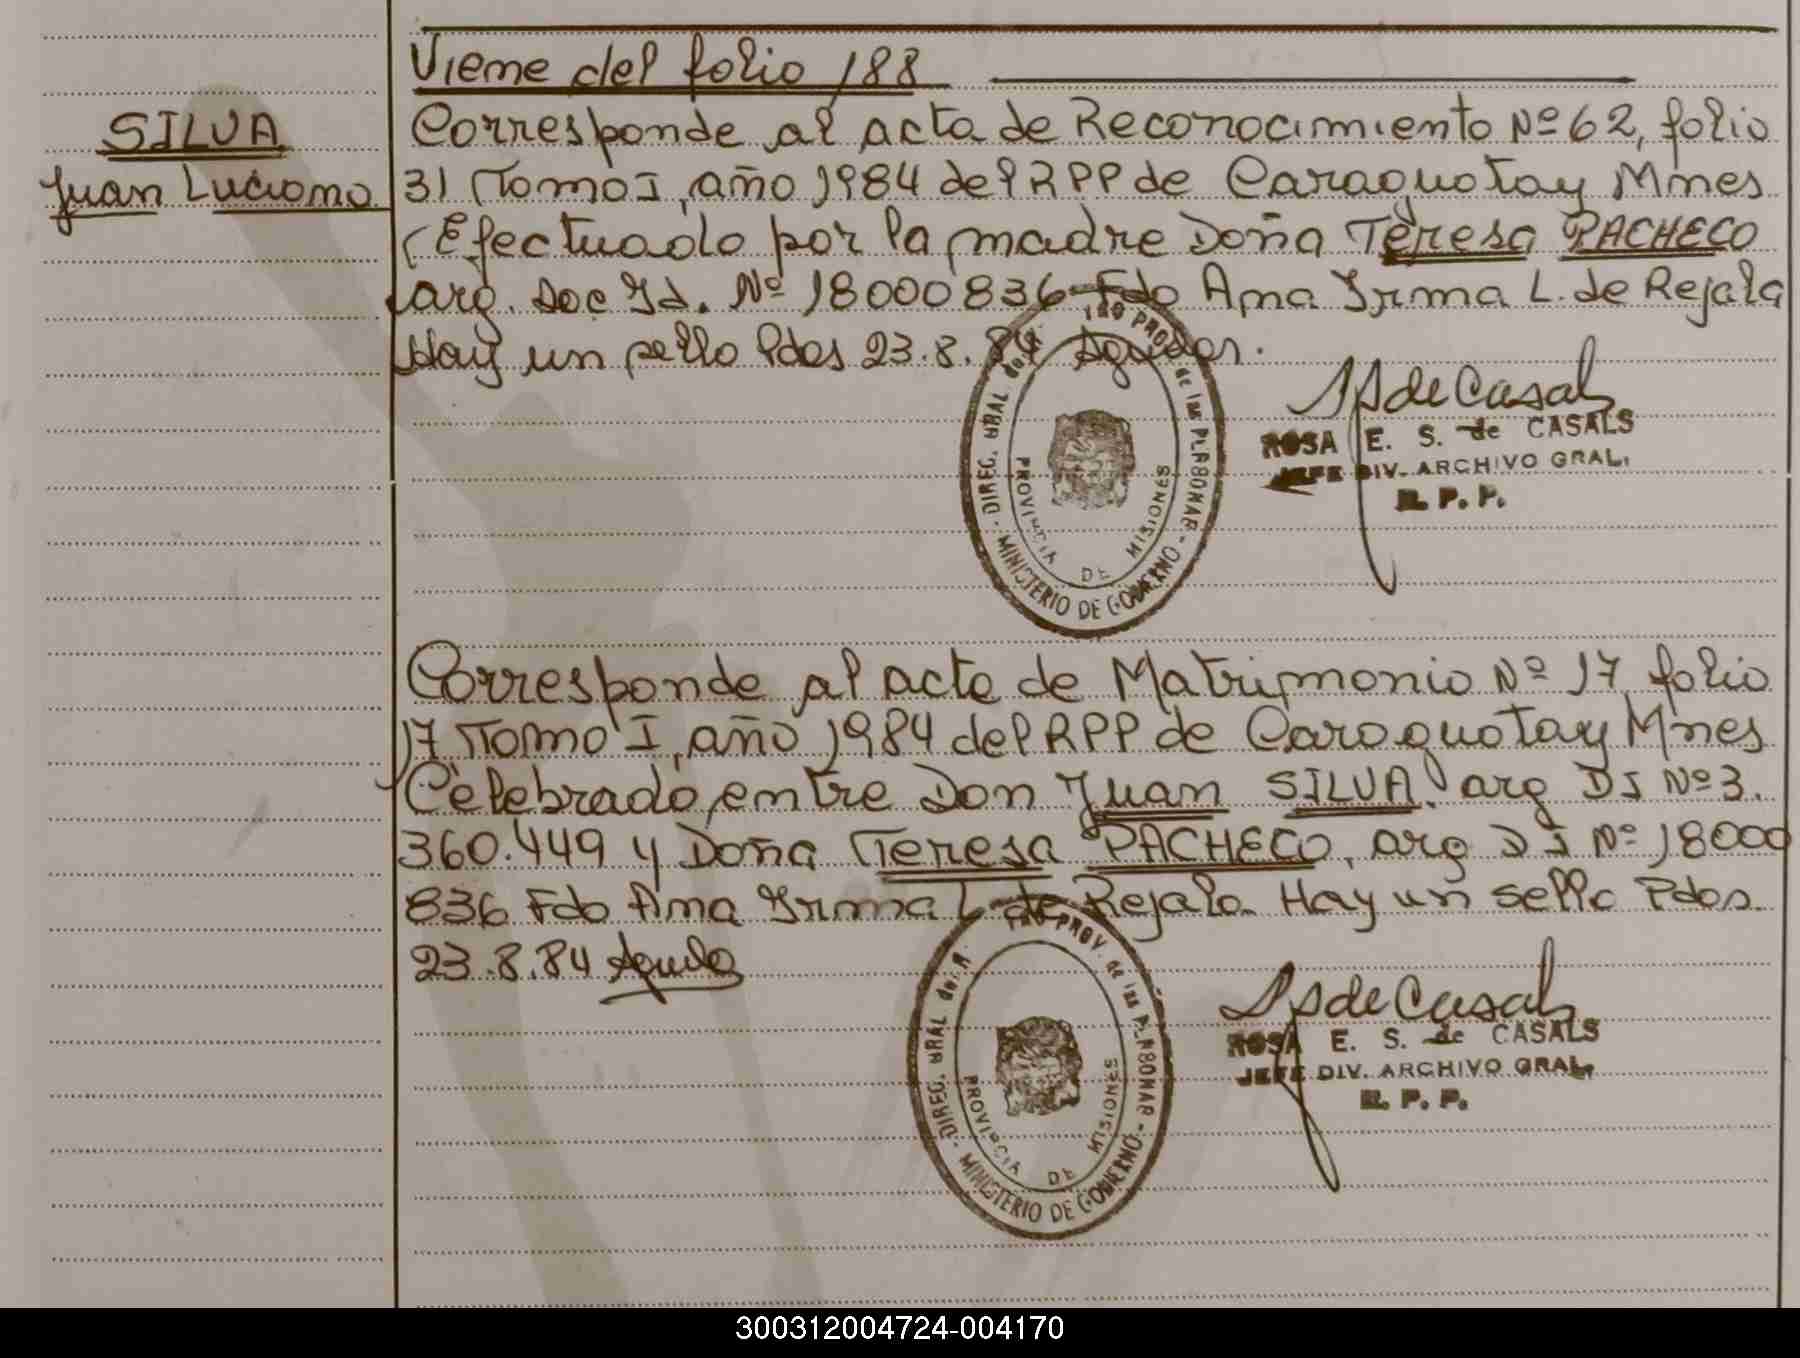 Viene del folio 188
SILVA
Juan Luciano
Corresponde al acta de Reconocimiento Nº 62, folio
31 Tomo I, año 1984 del RPP de Caraguatay Mnes
Efectuado por la madre Doña Teresa PACHECO
arg. Doc Id. Nº 18000836 Fdo Ana Irma L. de Rejala
Hay un sello Pdas 23.8.84
DIREC. GRAL del R. PROV. de las PERSONAS
PROVINCIA DE MISIONES
MINISTERIO DE GOBIERNO
S de Casals
ROSA E. S. de CASALS
JEFE DIV. ARCHIVO GRAL.
R. P. P.
Corresponde al acta de Matrimonio Nº 17 folio
17 Tomo I, año 1984 del RPP de Caraguatay Mnes
Celebrado, entre Don Juan SILVA arg DI Nº 3.
360.449 y Doña Teresa PACHECO, arg DI Nº 18000
836 Fdo Ana Irma L de Rejala Hay un sello Pdas
23.8.84
DIREC. GRAL del R. PROV. de las PERSONAS
PROVINCIA DE MISIONES
MINISTERIO DE GOBIERNO
S de Casals
ROSA E. S. de CASALS
JEFE DIV. ARCHIVO GRAL.
R. P. P.
300312004724-004170